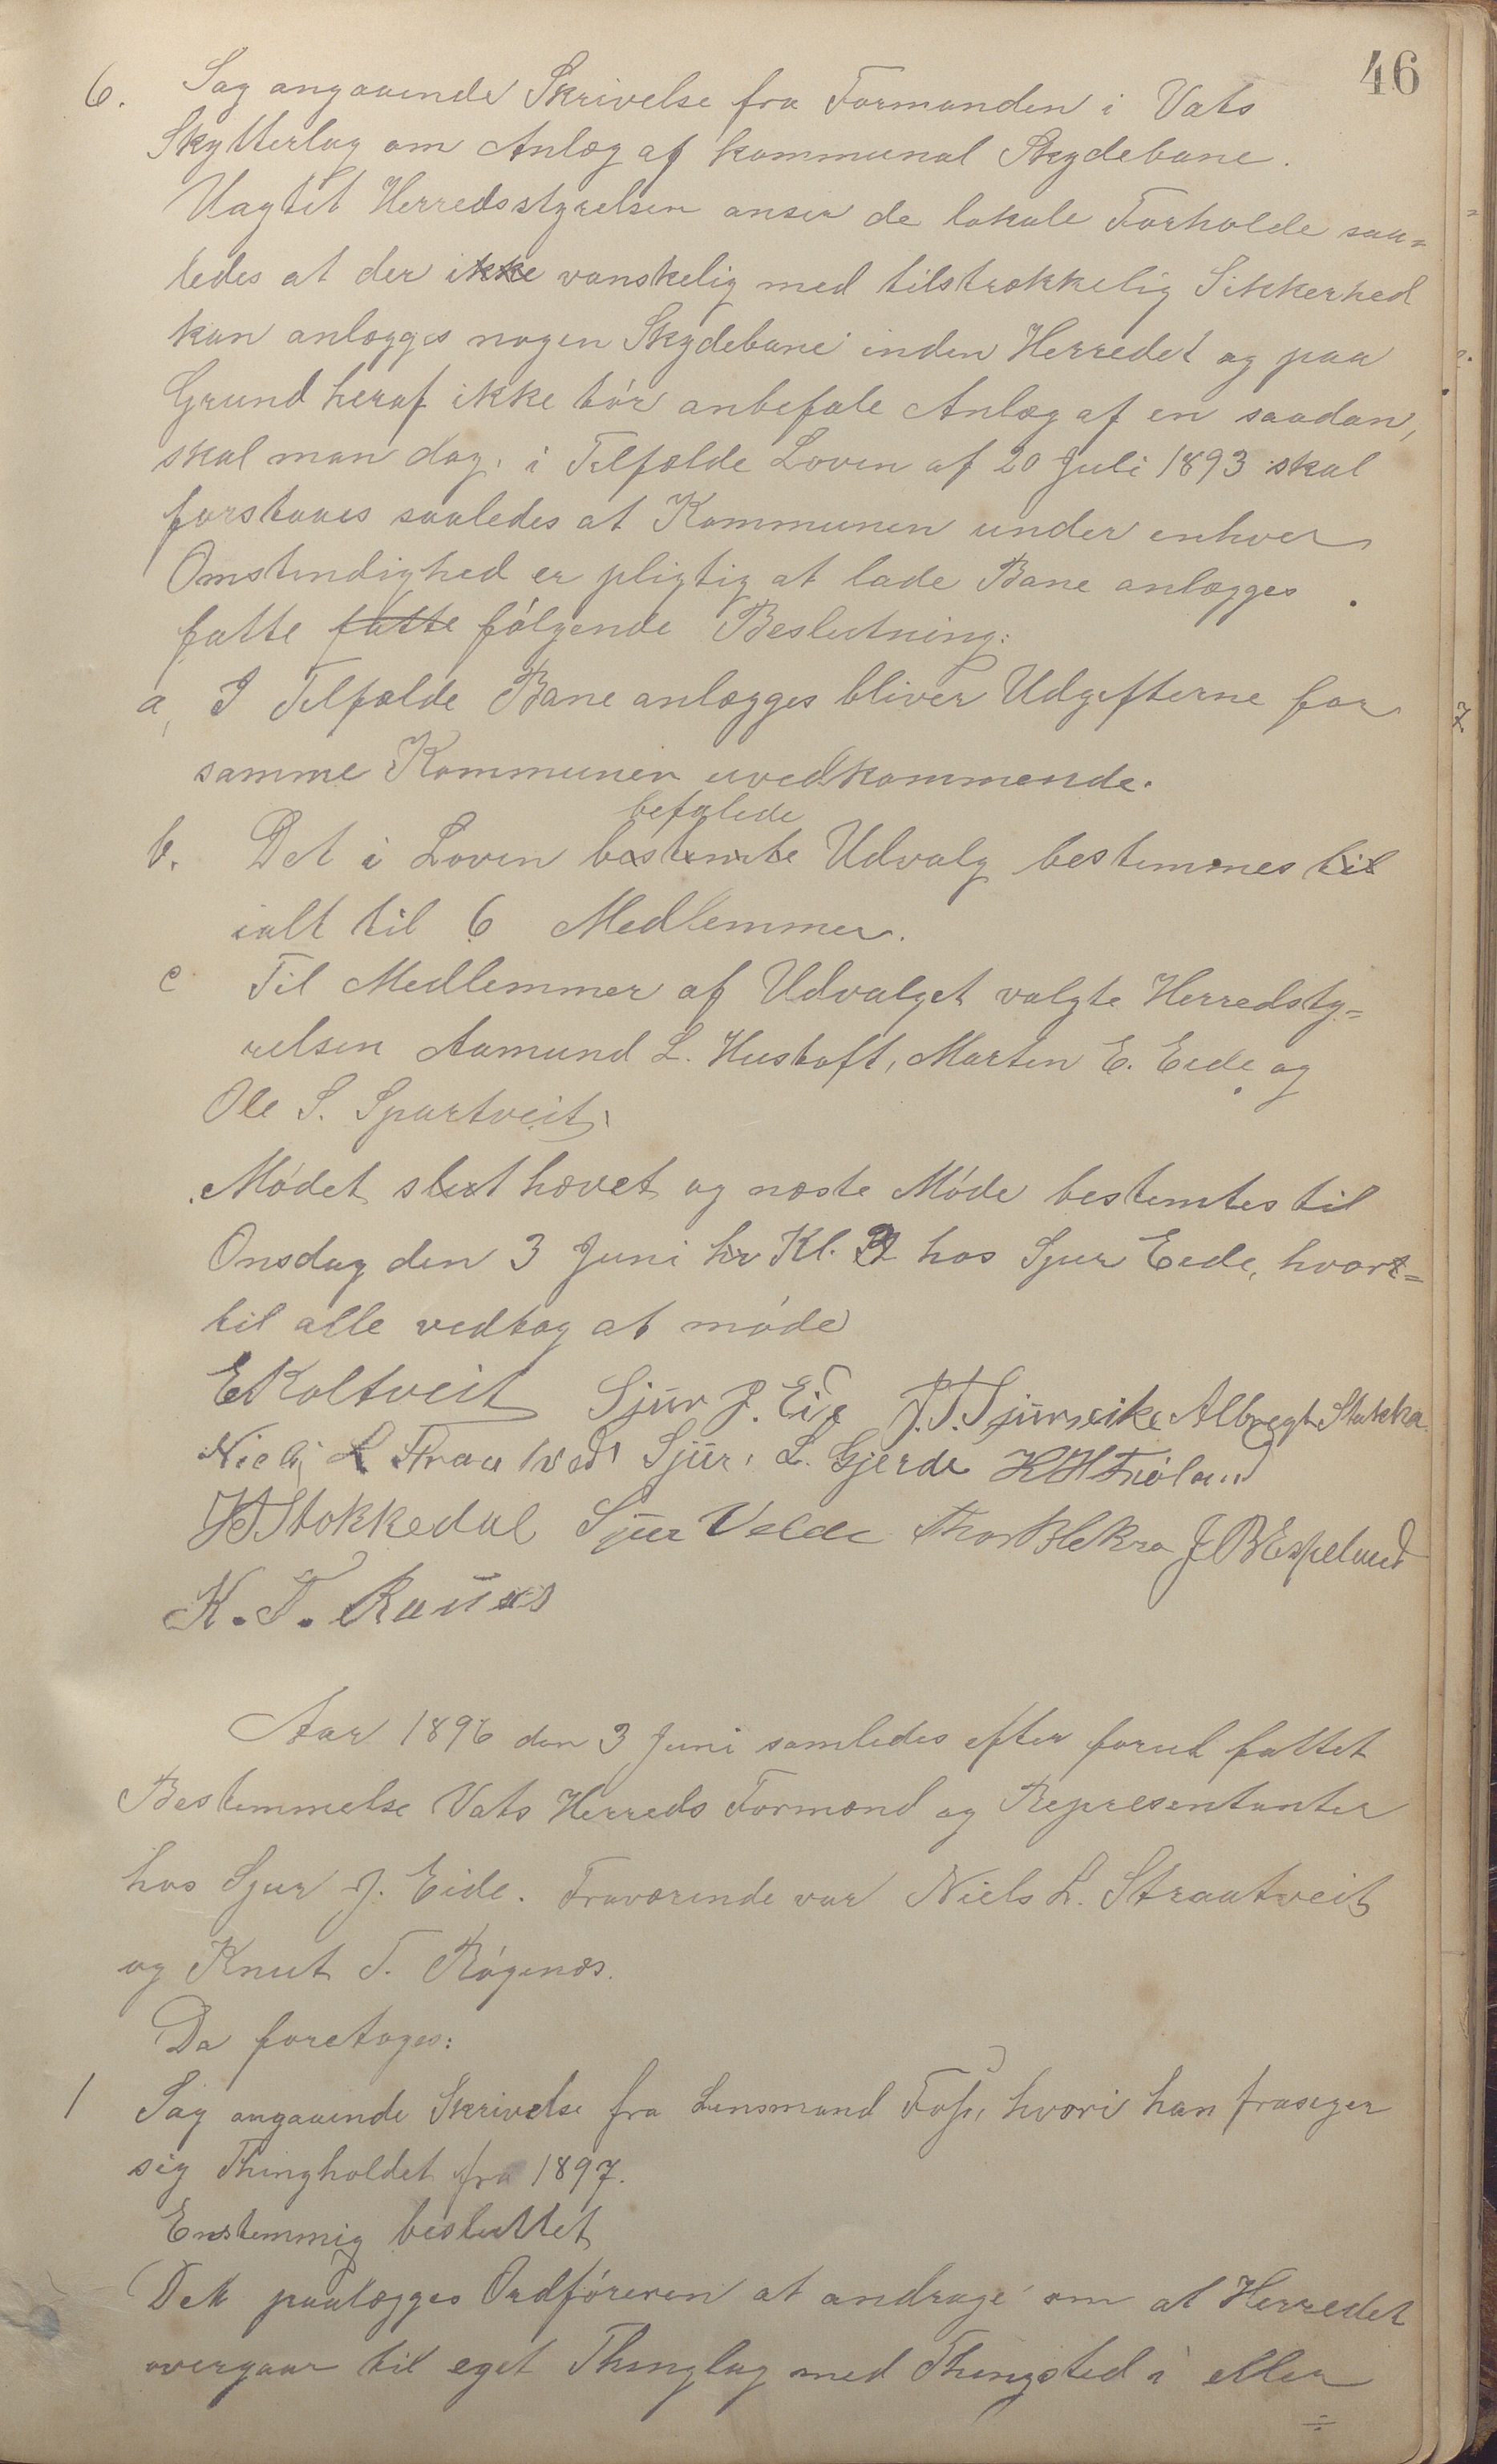 46
6. Sag angaaende Skrivelse fra Formanden i Vats
Skytterlag om Anlæg af kommunal Skydebane.
Uagtet Herredsstyrelsen anser de lokale Forholde saa=
ledes at der ikke vanskelig med tilstrækkelig Sikkerhed
kan anlægges nogen Skydebane inden Herredet og paa
Grund heraf ikke tør anbefale Anlæg af en saadan,
skal man dog, i Tilfælde Loven af 20 Juli 1893 skal
forstaaes saaledes at Kommunen under enhver
Omstendighed er pligtig at lade Bane anlægges
fatte fatte følgende Beslutning:
a, I Tilfælde Bane anlægges bliver Udgifterne for
samme Kommunen uvedkommende.
befalede
b. Det i Loven bestemte Udvalg bestemmes til
ialt til 6 Medlemmer.
c Til Medlemmer af Udvalget valgte Herredsty=
relsen Aamund L. Hustoft, Marten E. Eide og
Ole S. Spartveit.
Mødet slut hævet og næste Møde bestemtes til
Onsdag den 3 Juni hr Kl. 2 hos Sjur Eide, hvort=
til alle vedtog at møde
E Koltveit Sjur J. Eide J. T. Tjurneike Albregt Stakka
Niels L Straatveit Sjur L. Gjerde K H Frøland
Stokkedal Sjur Velde Thor Blekra J B Espeland
K. T.
Aar 1896 den 3 Juni samledes efter forut fattet
Bestemmelse Vats Herreds Formænd og Representanter
hos Sjur J. Eide. Fraværende var Niels L. Straatveit
og Knut T. Røgenæs.
Da foretoges:
1 Sag angaaende Skrivelse fra Lensmand Foss, hvori han frasiger
sig Thingholdet fra 1897.
Enstemmig besluttet
Det paalægges Ordføreren at andrage om at Herredet
overgaar til eget Thinglag med Thingsted i eller